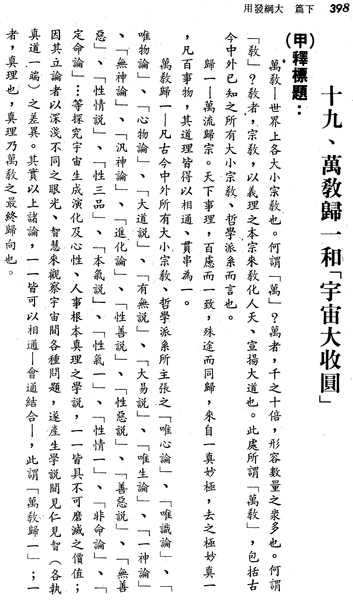 398
下篇 大綱發用
十九、萬教歸一和「宇宙大收圓」
(甲)釋標題：
萬教─世界上各大小宗教也。何謂「萬」？萬者，千之十倍，形容數量之衆多也。何謂
「教」？教者，宗教，以義理之本宗來教化人天、宣揚大道也。此處所謂「萬教」，包括古
今中外已知之所有大小宗教、哲學派系而言也。
歸一─萬流歸宗。天下事理，百慮而一致，殊途而同歸，來自一真妙極，去之極妙真一
，凡百事物，其道理皆得以相通、貫串為一。
萬教歸一─凡古今中外所有大小宗教、哲學派系所主張之「唯心論」、「唯識論」、「
唯物論」、「心物論」、「大道說」、「有無說」、「大易說」、「唯生論」、「一神論」
、「無神論」、「汎神論」、「進化論」、「性善說」、「性惡說」、「善惡說」、「無善
惡」、「性情說」、「性三品」、「本氣說」、「性氣一」、「性情一」、「非命論」、「
定命論」…等探究宇宙生成演化及心性、人事根本真理之學說，一一皆具不可磨滅之價值；
因其立論者以深淺不同之眼光、智慧來觀察宇宙間各種問題，遂產生學說間見仁見智（各執
真道一端）之差異。其實以上諸論，一一皆可以相通─會通結合─，此謂「萬教歸一」；一
者，真理也，真理乃萬教之最終歸向也。